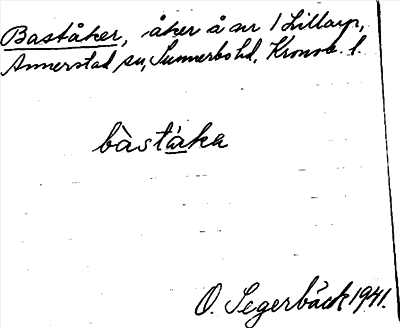 Baståker, åker å nr 1 Lillarp,
Annerstad sn, Sunnerbo hd, Kronob. l.
bàståka
O. Segerbäck 1941.